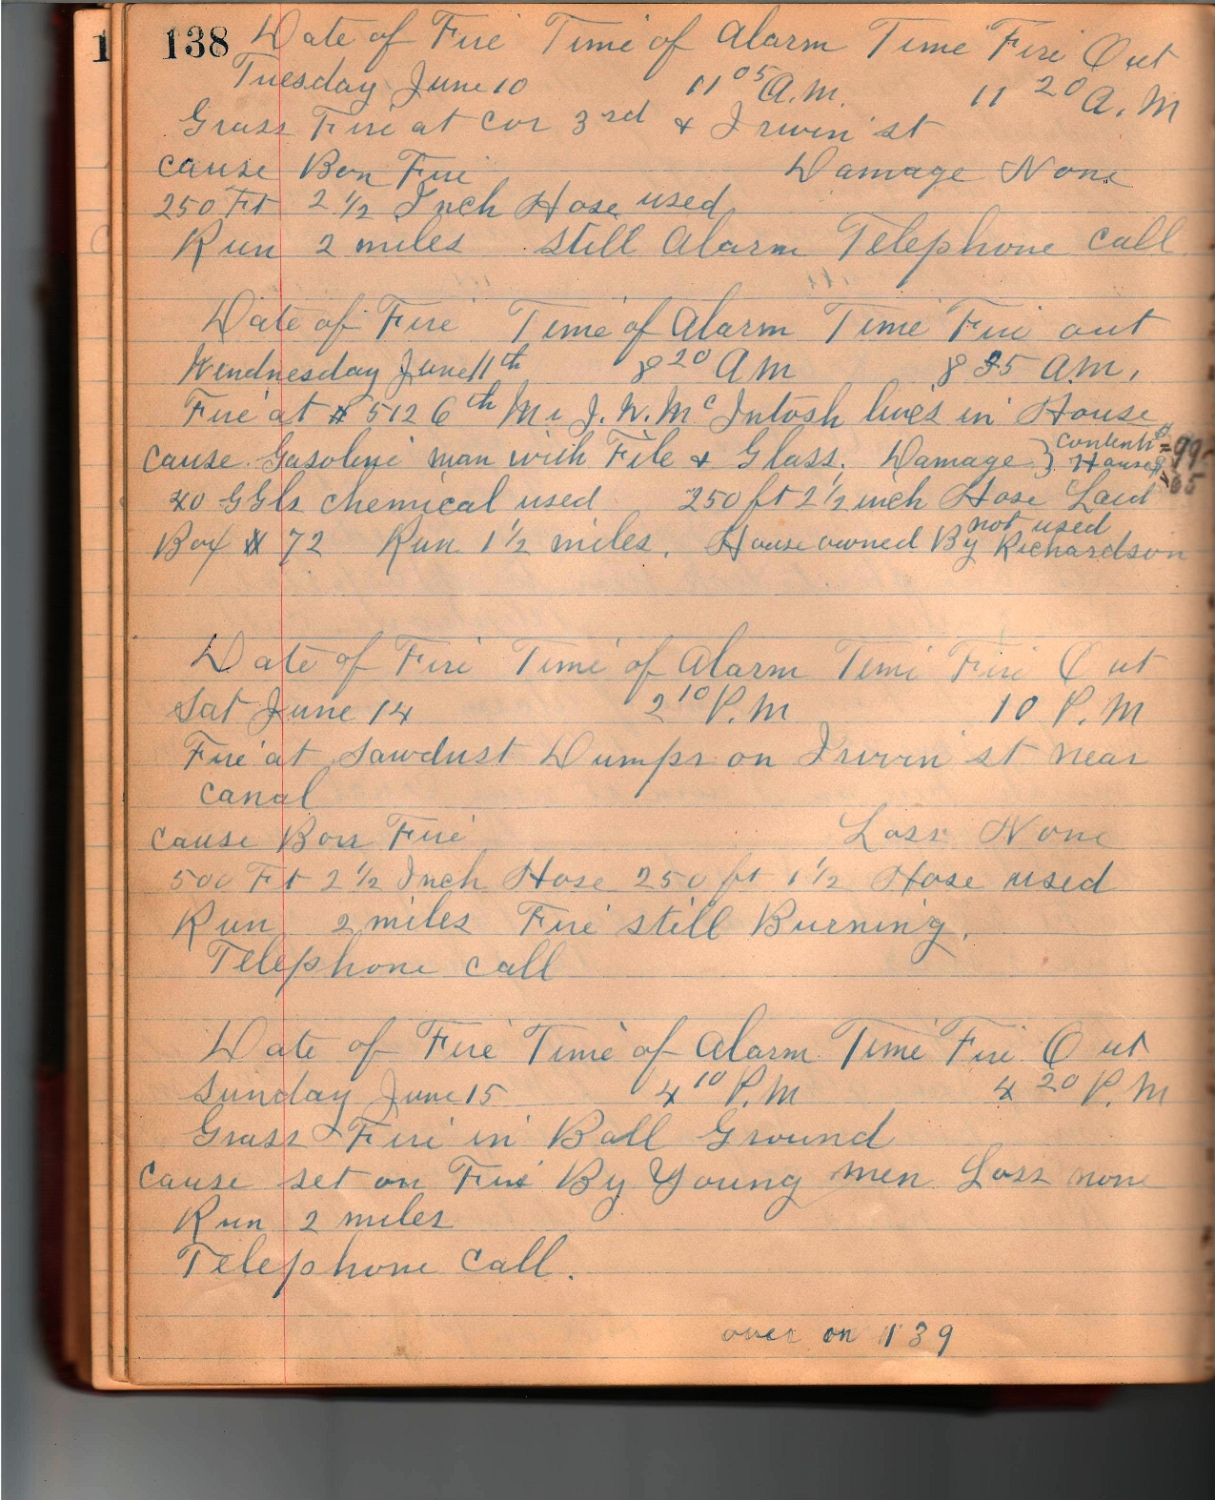 138 Date of Fire Time of Alarm Time Fire Out
Tuesday June 10 11 05 A.M. 11 20 A.M
Grass Fire at cor 3rd & Irwin st
cause Bon Fire Damage None
250 Ft 2 1/2 Inch Hose used
Run 2 miles still Alarm Telephone call
Date of Fire Time of Alarm Time Fire out
Wendnesday June 11th 8 20 AM 8 35 A.M.
Fire at # 512 6th Mr J.W. McIntosh lives in House
cause Gasoline man with File & Glass. Damage } Contents $ = 99
House $ 65
40 GGls chemical used 250 ft 2 1/2 inch Hose Laid
not used
Box # 72 Run 1 1/2 miles. House owned By Richardson
Date of Fire Time of Alarm Time Fire Out
Sat June 14 2 10 P.M 10 P.M
Fire at Sawdust Dumps on Irwin st near
canal
cause Bon Fire Loss None
500 Ft 2 1/2 Inch Hose 250 ft 1 1/2 Hose used
Run 2 miles Fire still Burning.
Telephone call
Date of Fire Time of Alarm Time Fire Out
Sunday June 15 4 10 P.M 4 20 P.M
Grass Fire in Ball Ground
Cause set on Fire By Young men Loss none
Run 2 miles
Telephone call.
over on 139